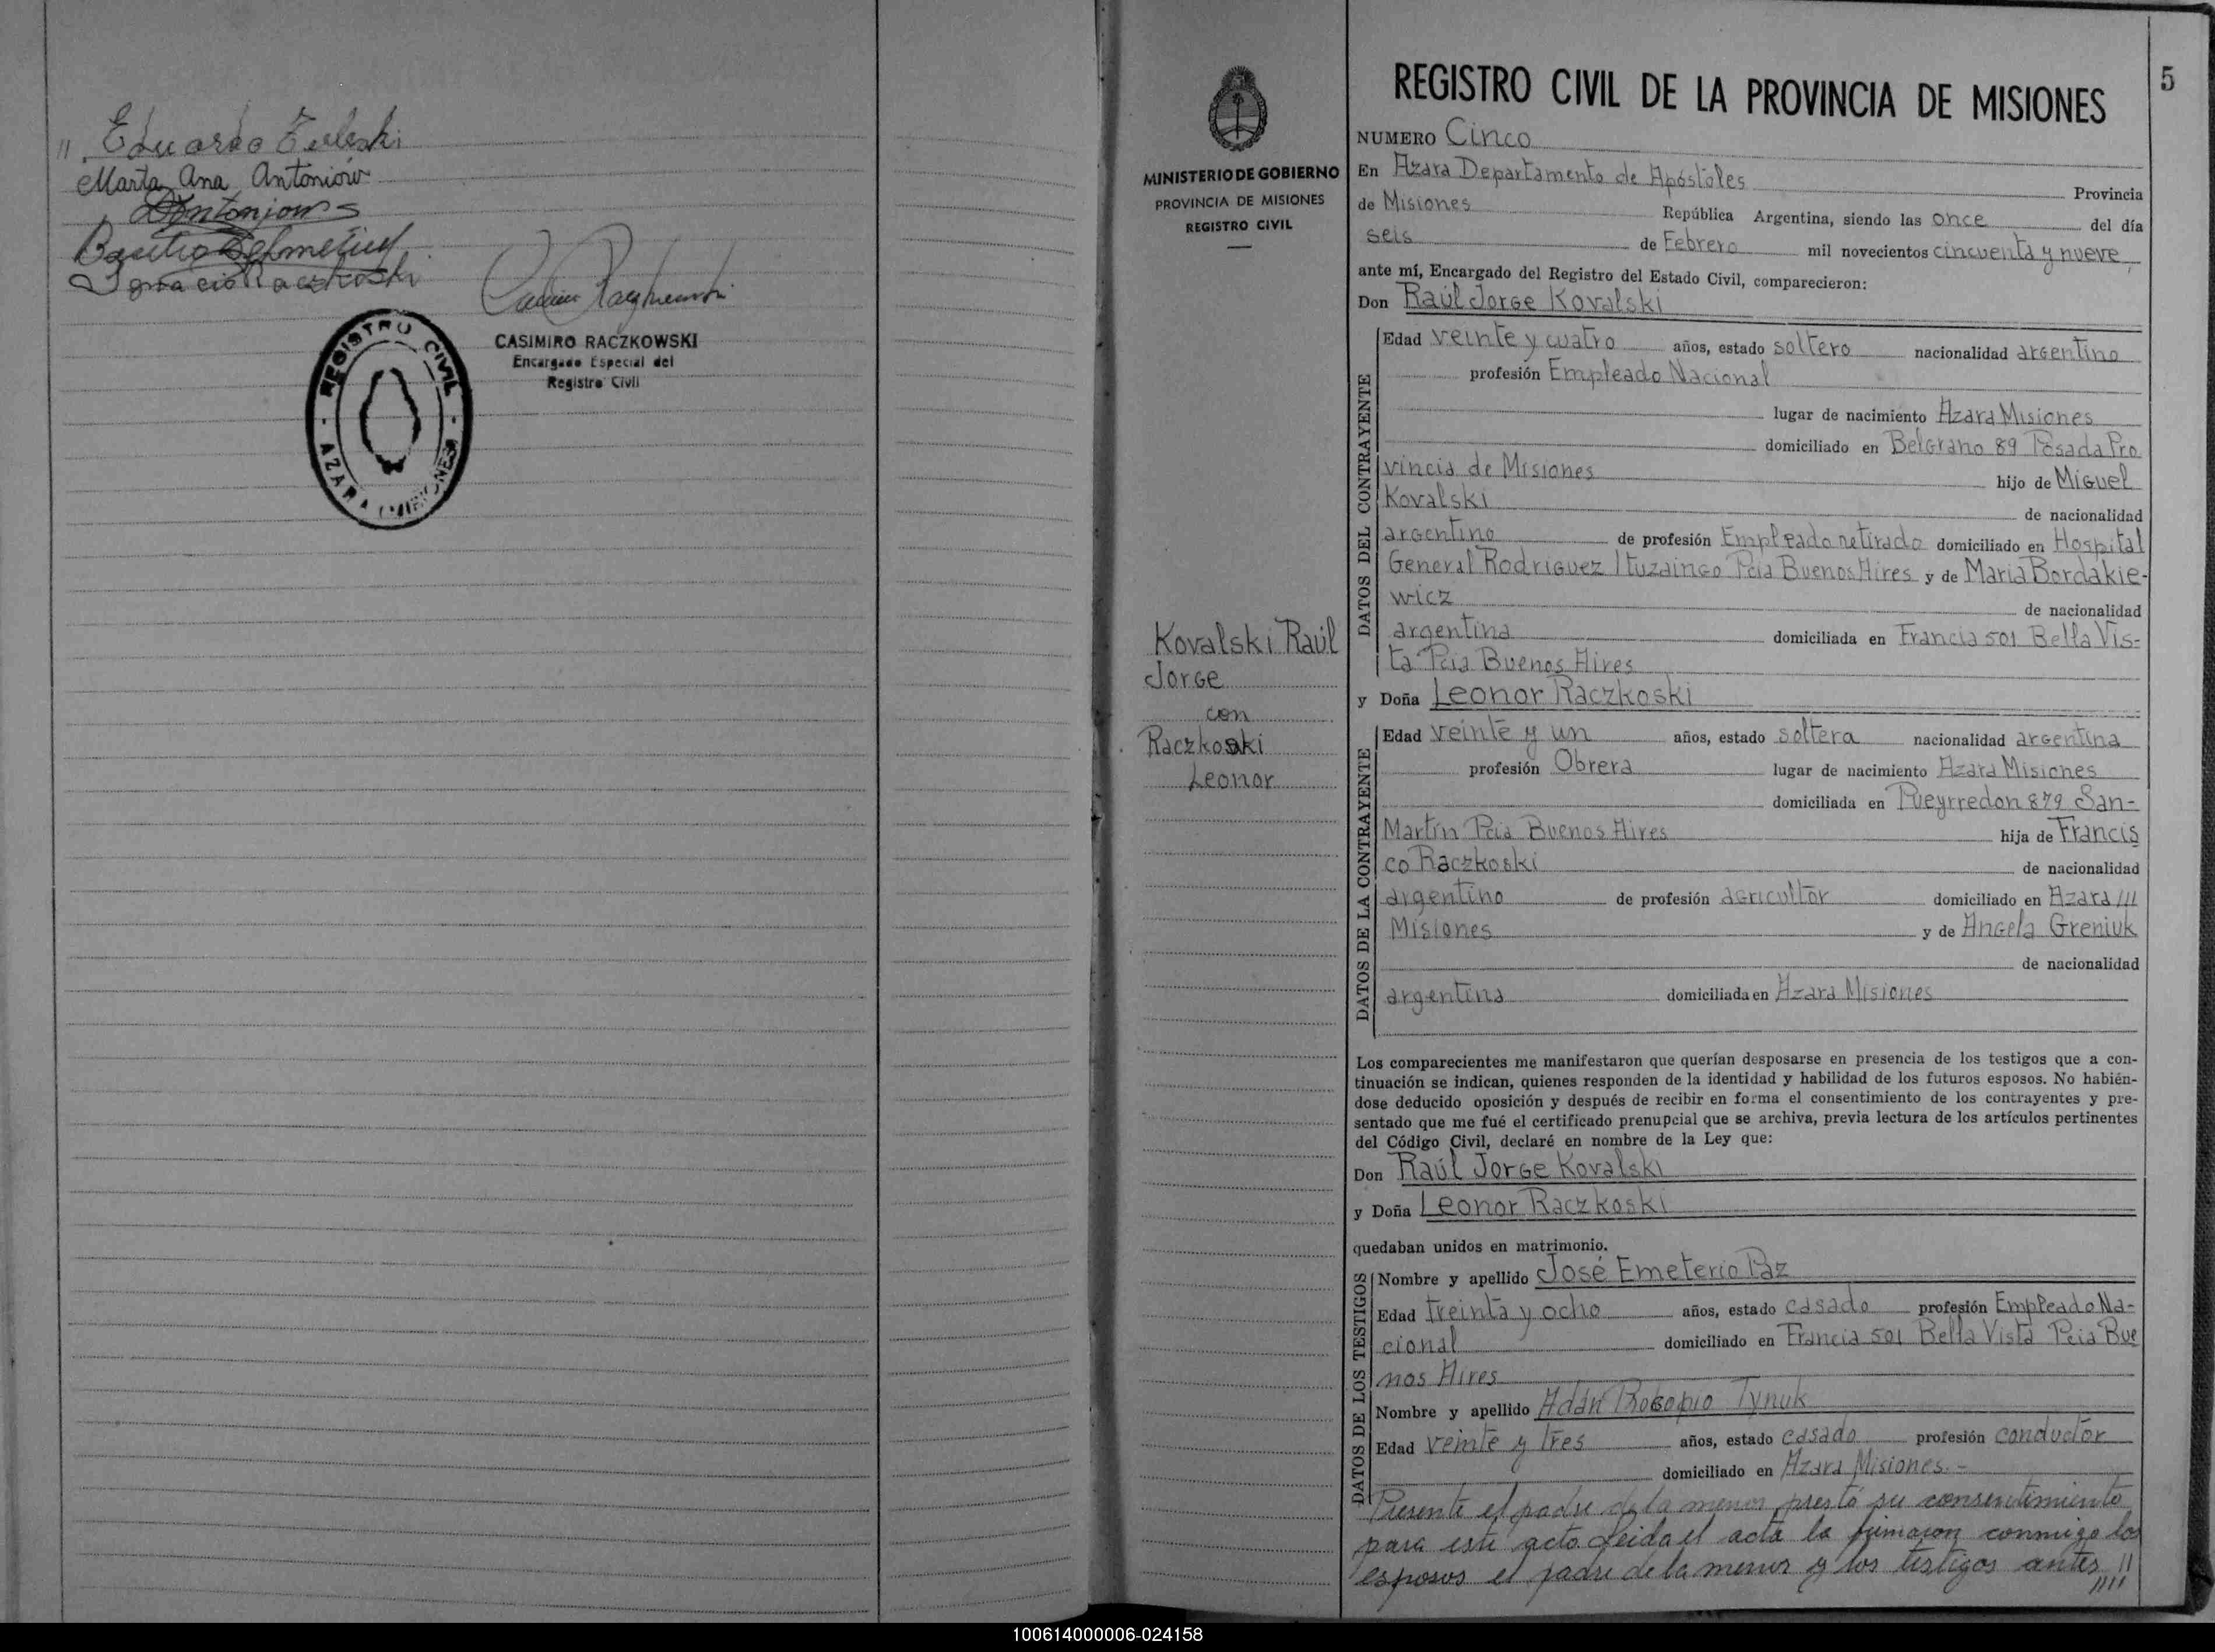 " Eduardo Zeleski
Marta Ana Antoniów
Antoniow
Basilio
Ignacio Raczkoski
CASIMIRO RACZKOWSKI
Encargado Especial del
Registro Civil
REGISTRO CIVIL
AZARA (MISIONES)
MINISTERIO DE GOBIERNO
PROVINCIA DE MISIONES
REGISTRO CIVIL
Kovalski Raúl
Jorge
con
Raczkoski
Leonor
5
REGISTRO CIVIL DE LA PROVINCIA DE MISIONES
NUMERO Cinco
En Azara Departamento de Apóstoles Provincia
de Misiones República Argentina, siendo las once del día
seis de Febrero mil novecientos cincuenta y nueve,
ante mí, Encargado del Registro del Estado Civil, comparecieron:
Don Raúl Jorge Kovalski
DATOS DEL CONTRAYENTE
Edad veinte y cuatro años, estado soltero nacionalidad argentino
profesión Empleado Nacional
lugar de nacimiento Azara Misiones
domiciliado en Belgrano 89 Posada Pro
vincia de Misiones hijo de Miguel
Kovalski de nacionalidad
argentino de profesión Empleado retirado domiciliado en Hospital
General Rodriguez Ituzaingo Pcia Buenos Aires y de Maria Bordakie-
wicz de nacionalidad
argentina domiciliada en Francia 501 Bella Vis-
ta Pcia Buenos Aires
y Doña Leonor Raczkoski
DATOS DE LA CONTRAYENTE
Edad veinte y un años, estado soltera nacionalidad argentina
profesión Obrera lugar de nacimiento Azara Misiones
domiciliada en Pueyrredon 879 San-
Martín Pcia Buenos Aires hija de Francis
co Raczkoski de nacionalidad
argentino de profesión agricultor domiciliado en Azara ///
Misiones y de Angela Greniuk
de nacionalidad
argentina domiciliada en Azara Misiones
Los comparecientes me manifestaron que querían desposarse en presencia de los testigos que a con-
tinuación se indican, quienes responden de la identidad y habilidad de los futuros esposos. No habién-
dose deducido oposición y después de recibir en forma el consentimiento de los contrayentes y pre-
sentado que me fué el certificado prenupcial que se archiva, previa lectura de los artículos pertinentes
del Código Civil, declaré en nombre de la Ley que:
Don Raúl Jorge Kovalski
y Doña Leonor Raczkoski
quedaban unidos en matrimonio.
DATOS DE LOS TESTIGOS
Nombre y apellido José Emeterio Paz
Edad treinta y ocho años, estado casado profesión Empleado Na-
cional domiciliado en Francia 501 Bella Vista Pcia Bue
nos Aires
Nombre y apellido Adán Procopio Tynuk
Edad veinte y tres años, estado casado profesión conductor
domiciliado en Azara Misiones.-
Presente el padre de la menor prestó su consentimiento
para este acto. Leida el acta la firmaron conmigo los
esposos el padre de la menor y los testigos antes //
////
100614000006-024158